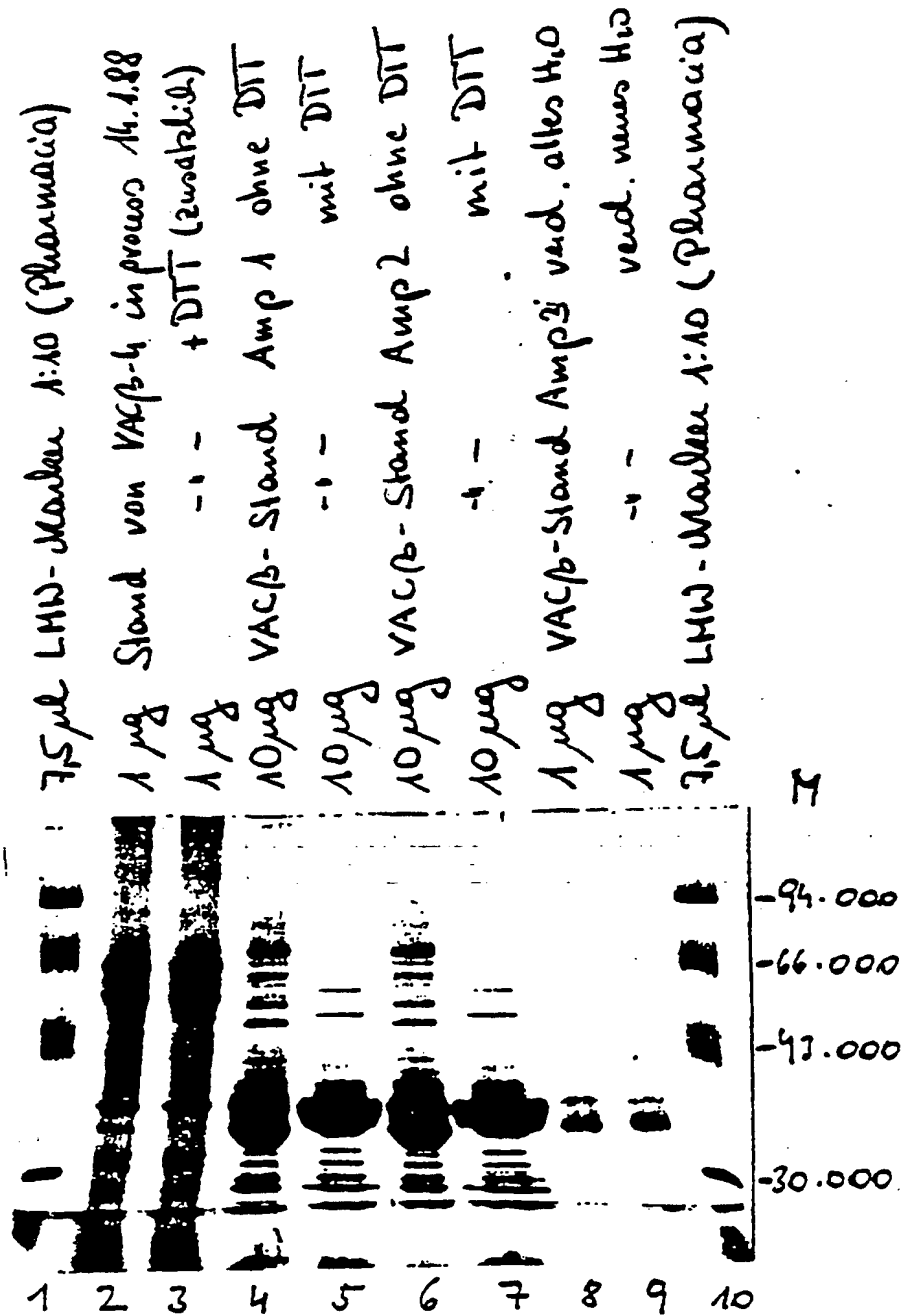 7,5 µl LMW-Marker 1:10 (Pharmacia)
1 µg Stand von VACβ-4 inprocess 14.1.88
1 µg -"- +DTT (zusätzlich)
10 µg VACβ-Stand Amp 1 ohne DTT
10 µg -"- mit DTT
10 µg VACβ-Stand Amp 2 ohne DTT
10 µg -"- mit DTT
1 µg VACβ-Stand Amp 3 verd. altes H₂O
1 µg -"- verd. neues H₂O
7,5 µl LMW-Marker 1:10 (Pharmacia)
M
-94.000
-66.000
-43.000
-30.000
1 2 3 4 5 6 7 8 9 10